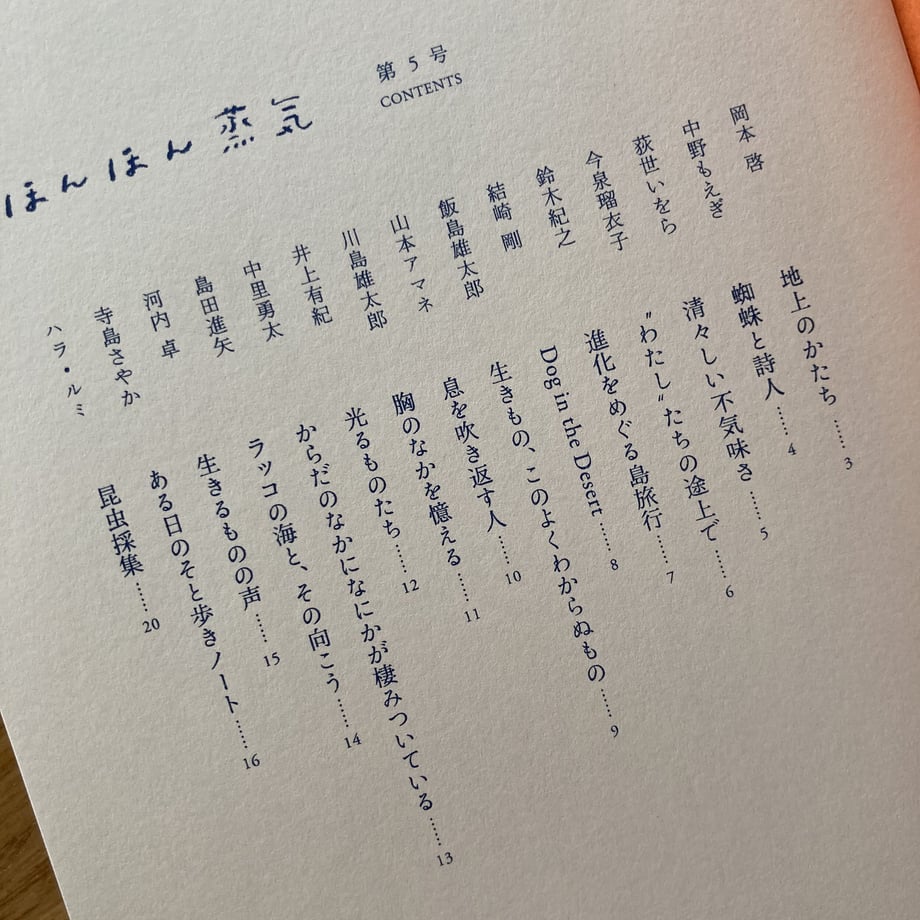 ほんほん蒸気
第5号
CONTENTS
岡本 啓 地上のかたち……3
中野もえぎ 蜘蛛と詩人……4
荻世いをら 清々しい不気味さ……5
今泉瑠衣子 〝わたし〟たちの途上で……6
鈴木紀之 進化をめぐる島旅行……7
結崎 剛 Dog in the Desert……8
飯島雄太郎 生きもの、このよくわからぬもの……9
山本アマネ 息を吹き返す人……10
川島雄太郎 胸のなかを憶える……11
井上有紀 光るものたち……12
中里勇太 からだのなかになにかが棲みついている……13
島田進矢 ラッコの海と、その向こう……14
河内 卓 生きるものの声……15
寺島さやか ある日のそと歩きノート……16
ハラ・ルミ 昆虫採集……20